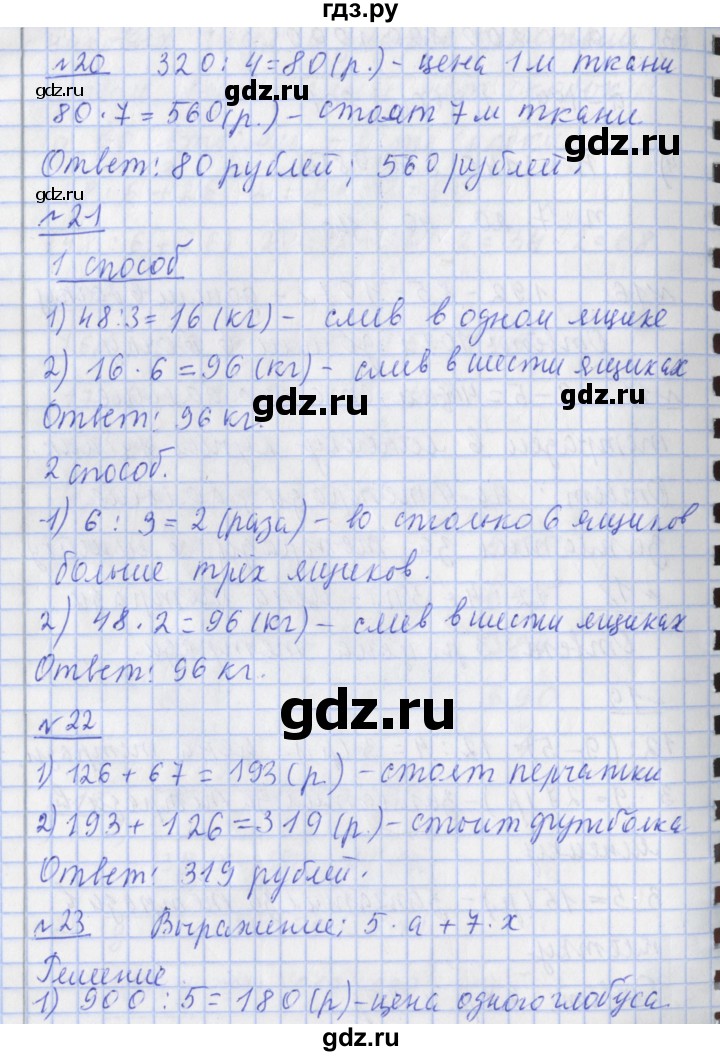 гдз.ру
№20 320 : 4 = 80 (р.) – цена 1 м ткани
gdz.ru
gdz.ru
80 · 7 = 560 (р.) – стоят 7 м ткани
gdz.ru
Ответ: 80 рублей; 560 рублей.
gdz.ru
№21
1 способ
1) 48 : 3 = 16 (кг) – слив в одном ящике
2) 16 · 6 = 96 (кг) – слив в шести ящиках
gdz.ru
gdz.ru
Ответ: 96 кг.
2 способ.
1) 6 : 3 = 2 (раза) – во столько 6 ящиков
больше трёх ящиков.
2) 48 · 2 = 96 (кг) – слив в шести ящиках
Ответ: 96 кг.
gdz.ru
№22
1) 126 + 67 = 193 (р.) – стоят перчатки
2) 193 + 126 = 319 (р.) – стоит футболка
Ответ: 319 рублей.
№23 Выражение: 5 · a + 7 · x
Решение
1) 900 : 5 = 180 (р) – цена одного глобуса.
gdz.ru